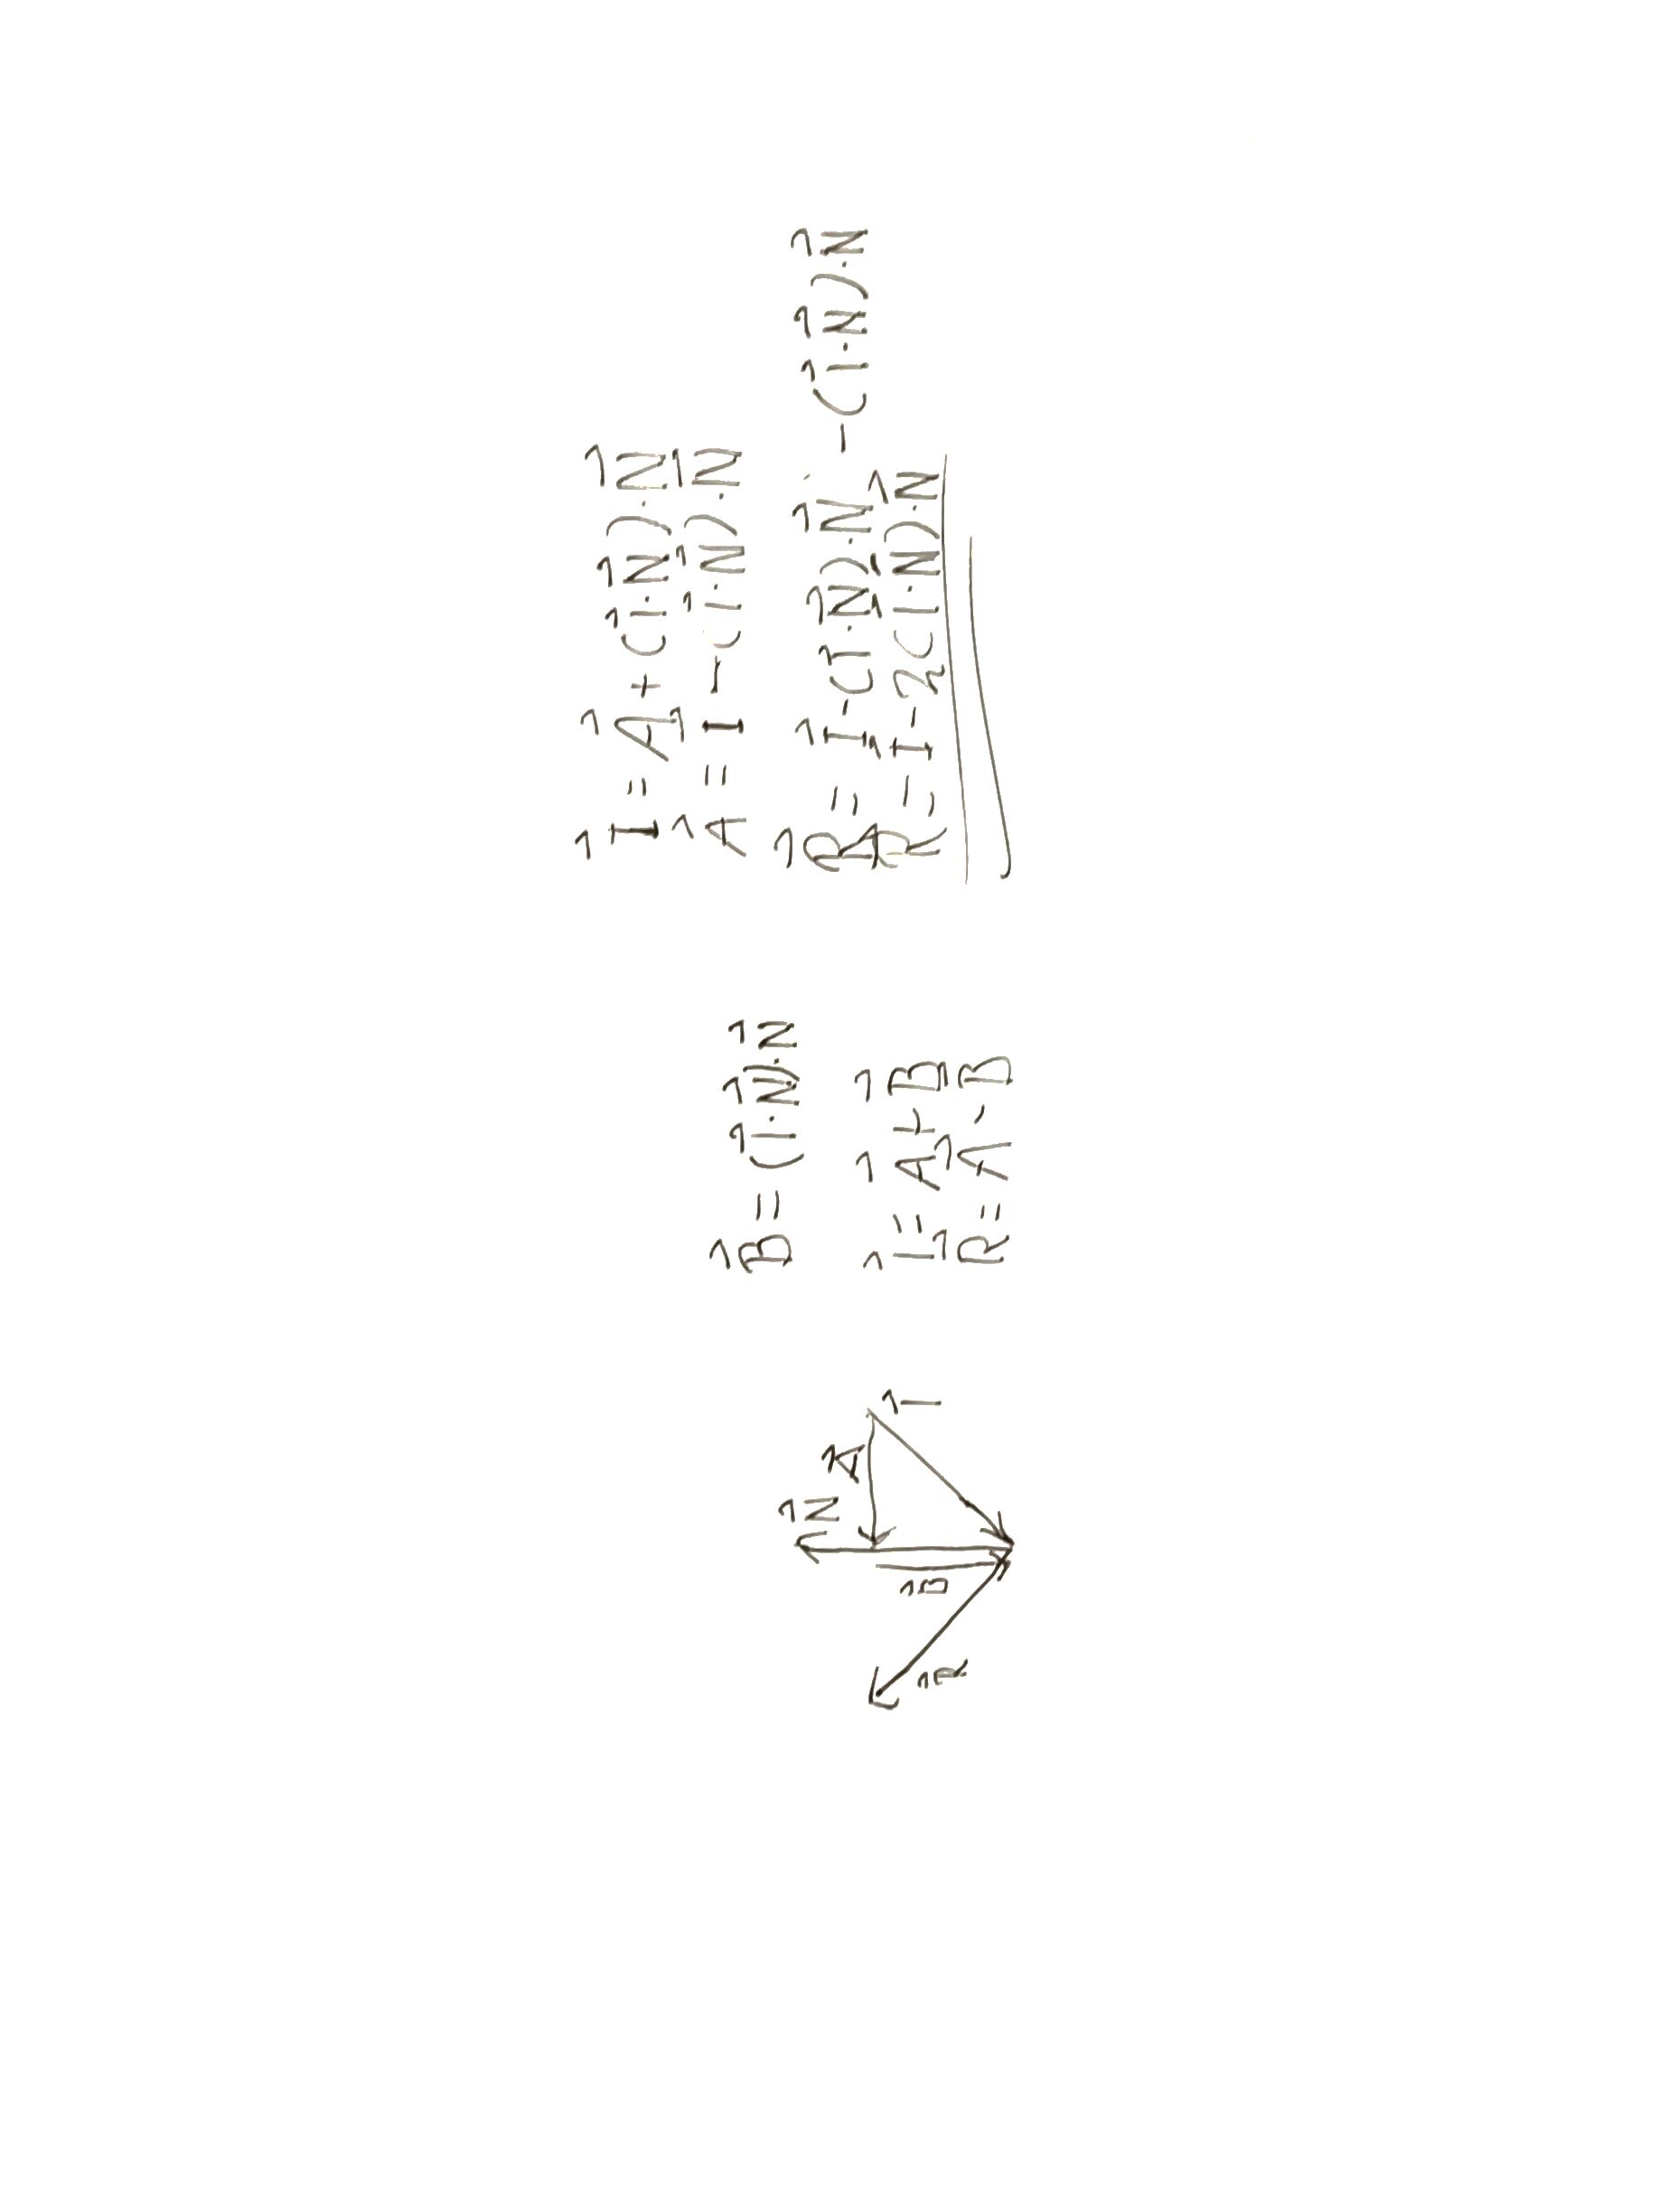 N⃗
A⃗
I⃗
B⃗
R⃗
B⃗ = (I⃗·N⃗)·N⃗
I⃗ = A⃗ + B⃗
R⃗ = A⃗ - B⃗
I⃗ = A⃗ + (I⃗·N⃗)·N⃗
A⃗ = I⃗ - (I⃗·N⃗)·N⃗
R⃗ = I⃗ - (I⃗·N⃗)·N⃗ - (I⃗·N⃗)·N⃗
R⃗ = I⃗ - 2(I⃗·N⃗)·N⃗